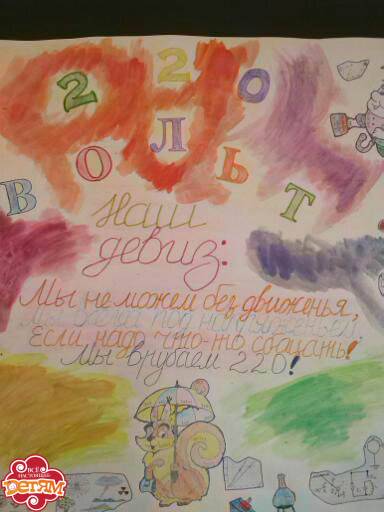 220
ВОЛЬТ
Наш
девиз:
Мы не можем без движенья,
Мы всегда под напряженьем,
Если надо что-то сбацать!
Мы врубаем 220!
ВСЁ
НАСТОЯЩЕЕ
ДЕТЯМ